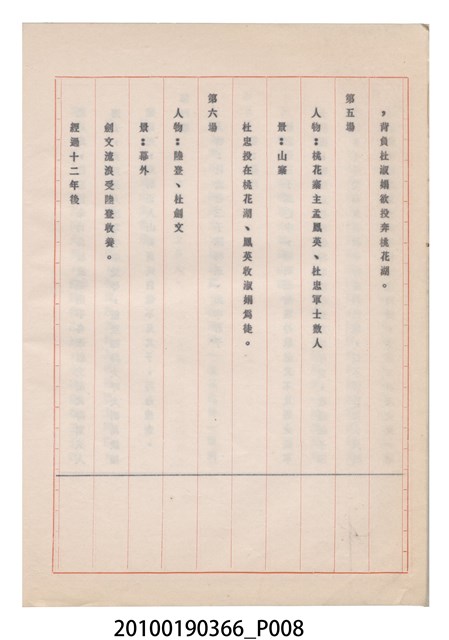 ，背負杜淑娟欲投奔桃花湖。
第五場
人物：桃花寨主孟鳳英、杜忠軍士數人
景：山寨
杜忠投在桃花湖、鳳英收淑娟為徒。
第六場
人物：陸登、杜劍文
景：幕外
劍文流浪受陸登收養。
經過十二年後
20100190366_P008